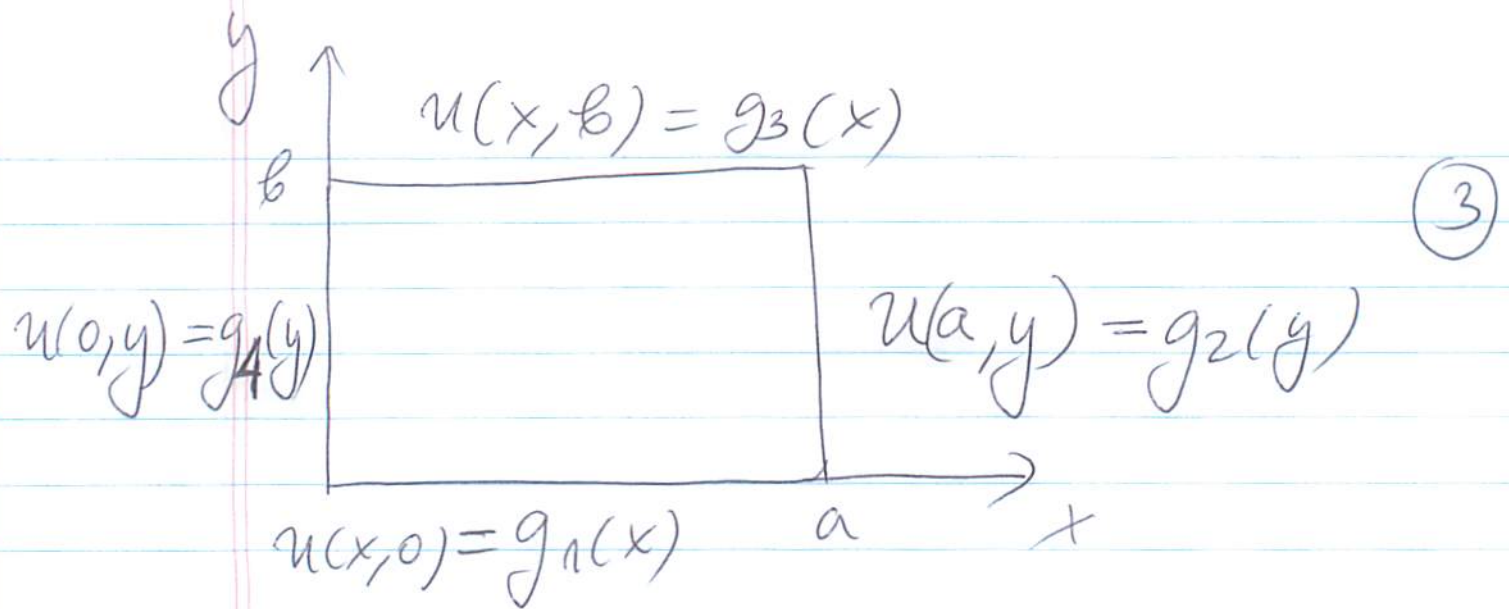 y
u(x, b) = g3(x)
b
3
u(0,y) = g4(y)
u(a,y) = g2(y)
u(x,0) = g1(x)
a
x